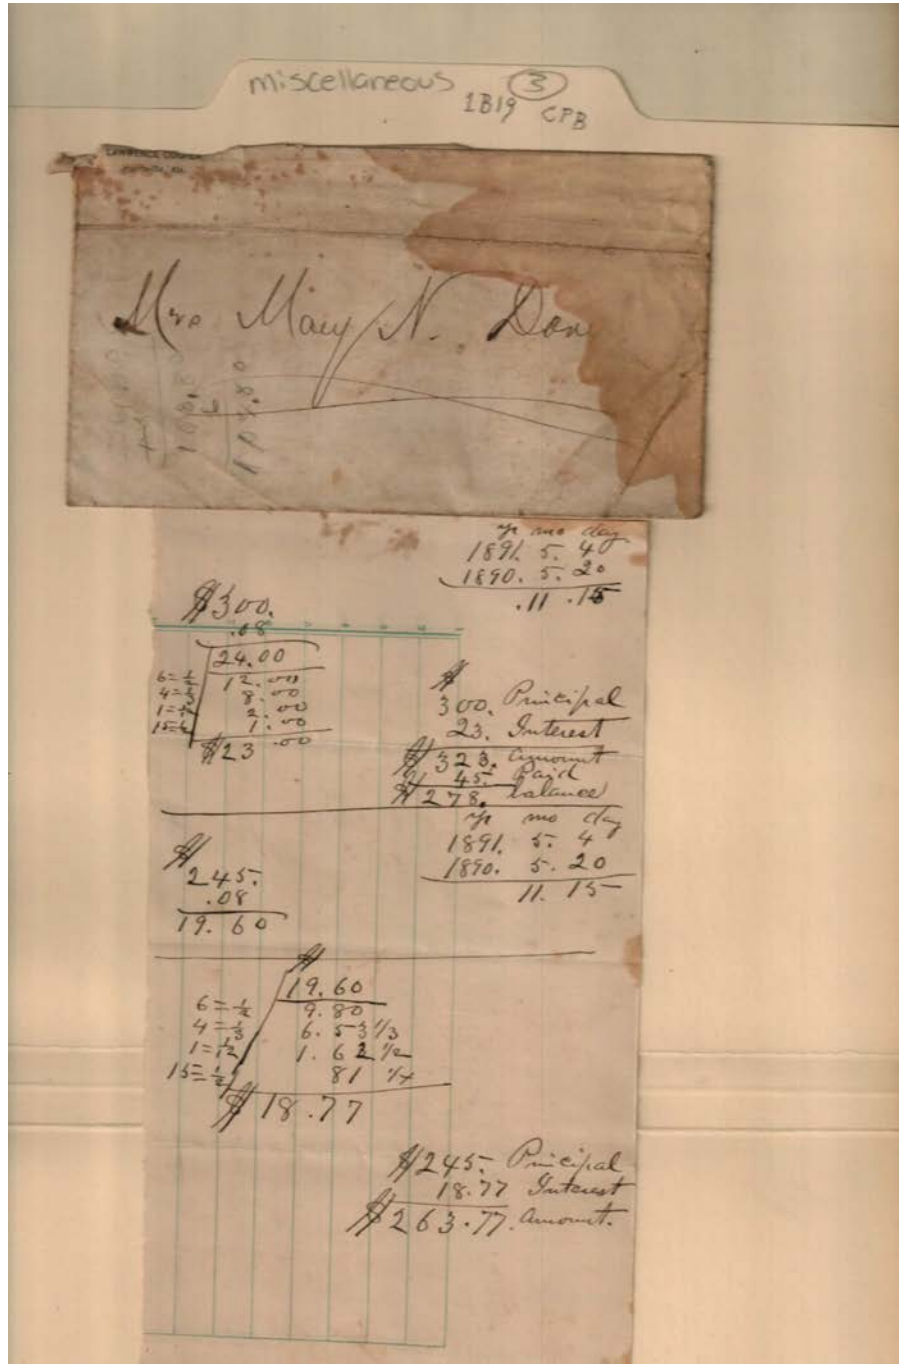 miscellaneous 3
1B19 CPB
LAWRENCE COOPER
Mrs Mary N. Don
108.80
6
yr mo day
1891. 5. 4
1890. 5. 20
.11 .15
$300.
.08
24.00
6=1/2 12.00
4=1/3 8.00
1= 2.00
15= 1.00
$23.00
$
300. Principal
23. Interest
$323. Amount
$45. Paid
$278. balance
yr mo day
1891. 5. 4
1890. 5. 20
11. 15
$
245.
.08
19.60
$
19.60
6=1/2 9.80
4=1/3 6.53 1/3
1=1/12 1.62 1/2
15=1/2 81 1/4
$18.77
$245. Principal
18.77 Interest
$263.77. Amount.